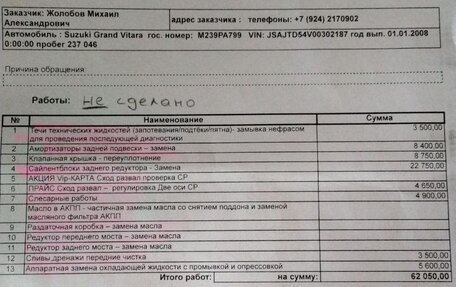 Заказчик: Жолобов Михаил
Александрович
адрес заказчика : телефоны: +7 (924) 2170902
Автомобиль : Suzuki Grand Vitara гос. номер: М239РА799 VIN: JSAJTD54V00302187 год вып. 01.01.2008
0:00:00 пробег 237 046
Причина обращения:
Работы: не сделано
№ Наименование Сумма
1 Течи технических жидкостей (запотевания/подтёки/пятна)- замывка нефрасом 3 500,00
для проведения последующей диагностики
2 Амортизаторы задней подвески – замена 8 400,00
3 Клапанная крышка - переуплотнение 8 750,00
4 Сайлентблоки заднего редуктора - Замена 22 750,00
5 АКЦИЯ Vip-КАРТА Сход развал проверка СР
6 ПРАЙС Сход развал – регулировка Две оси СР 4 650,00
7 Слесарные работы 4 900,00
8 Масло в АКПП - частичная замена масла со снятием поддона и заменой
масляного фильтра АКПП
9 Раздаточная коробка – замена масла
10 Редуктор переднего моста – замена масла
11 Редуктор заднего моста – замена масла
12 Сливы дренажи передние чистка 3 500,00
13 Аппаратная замена охлаждающей жидкости с промывкой и опрессовкой 5 600,00
Итого работ: на сумму: 62 050,00